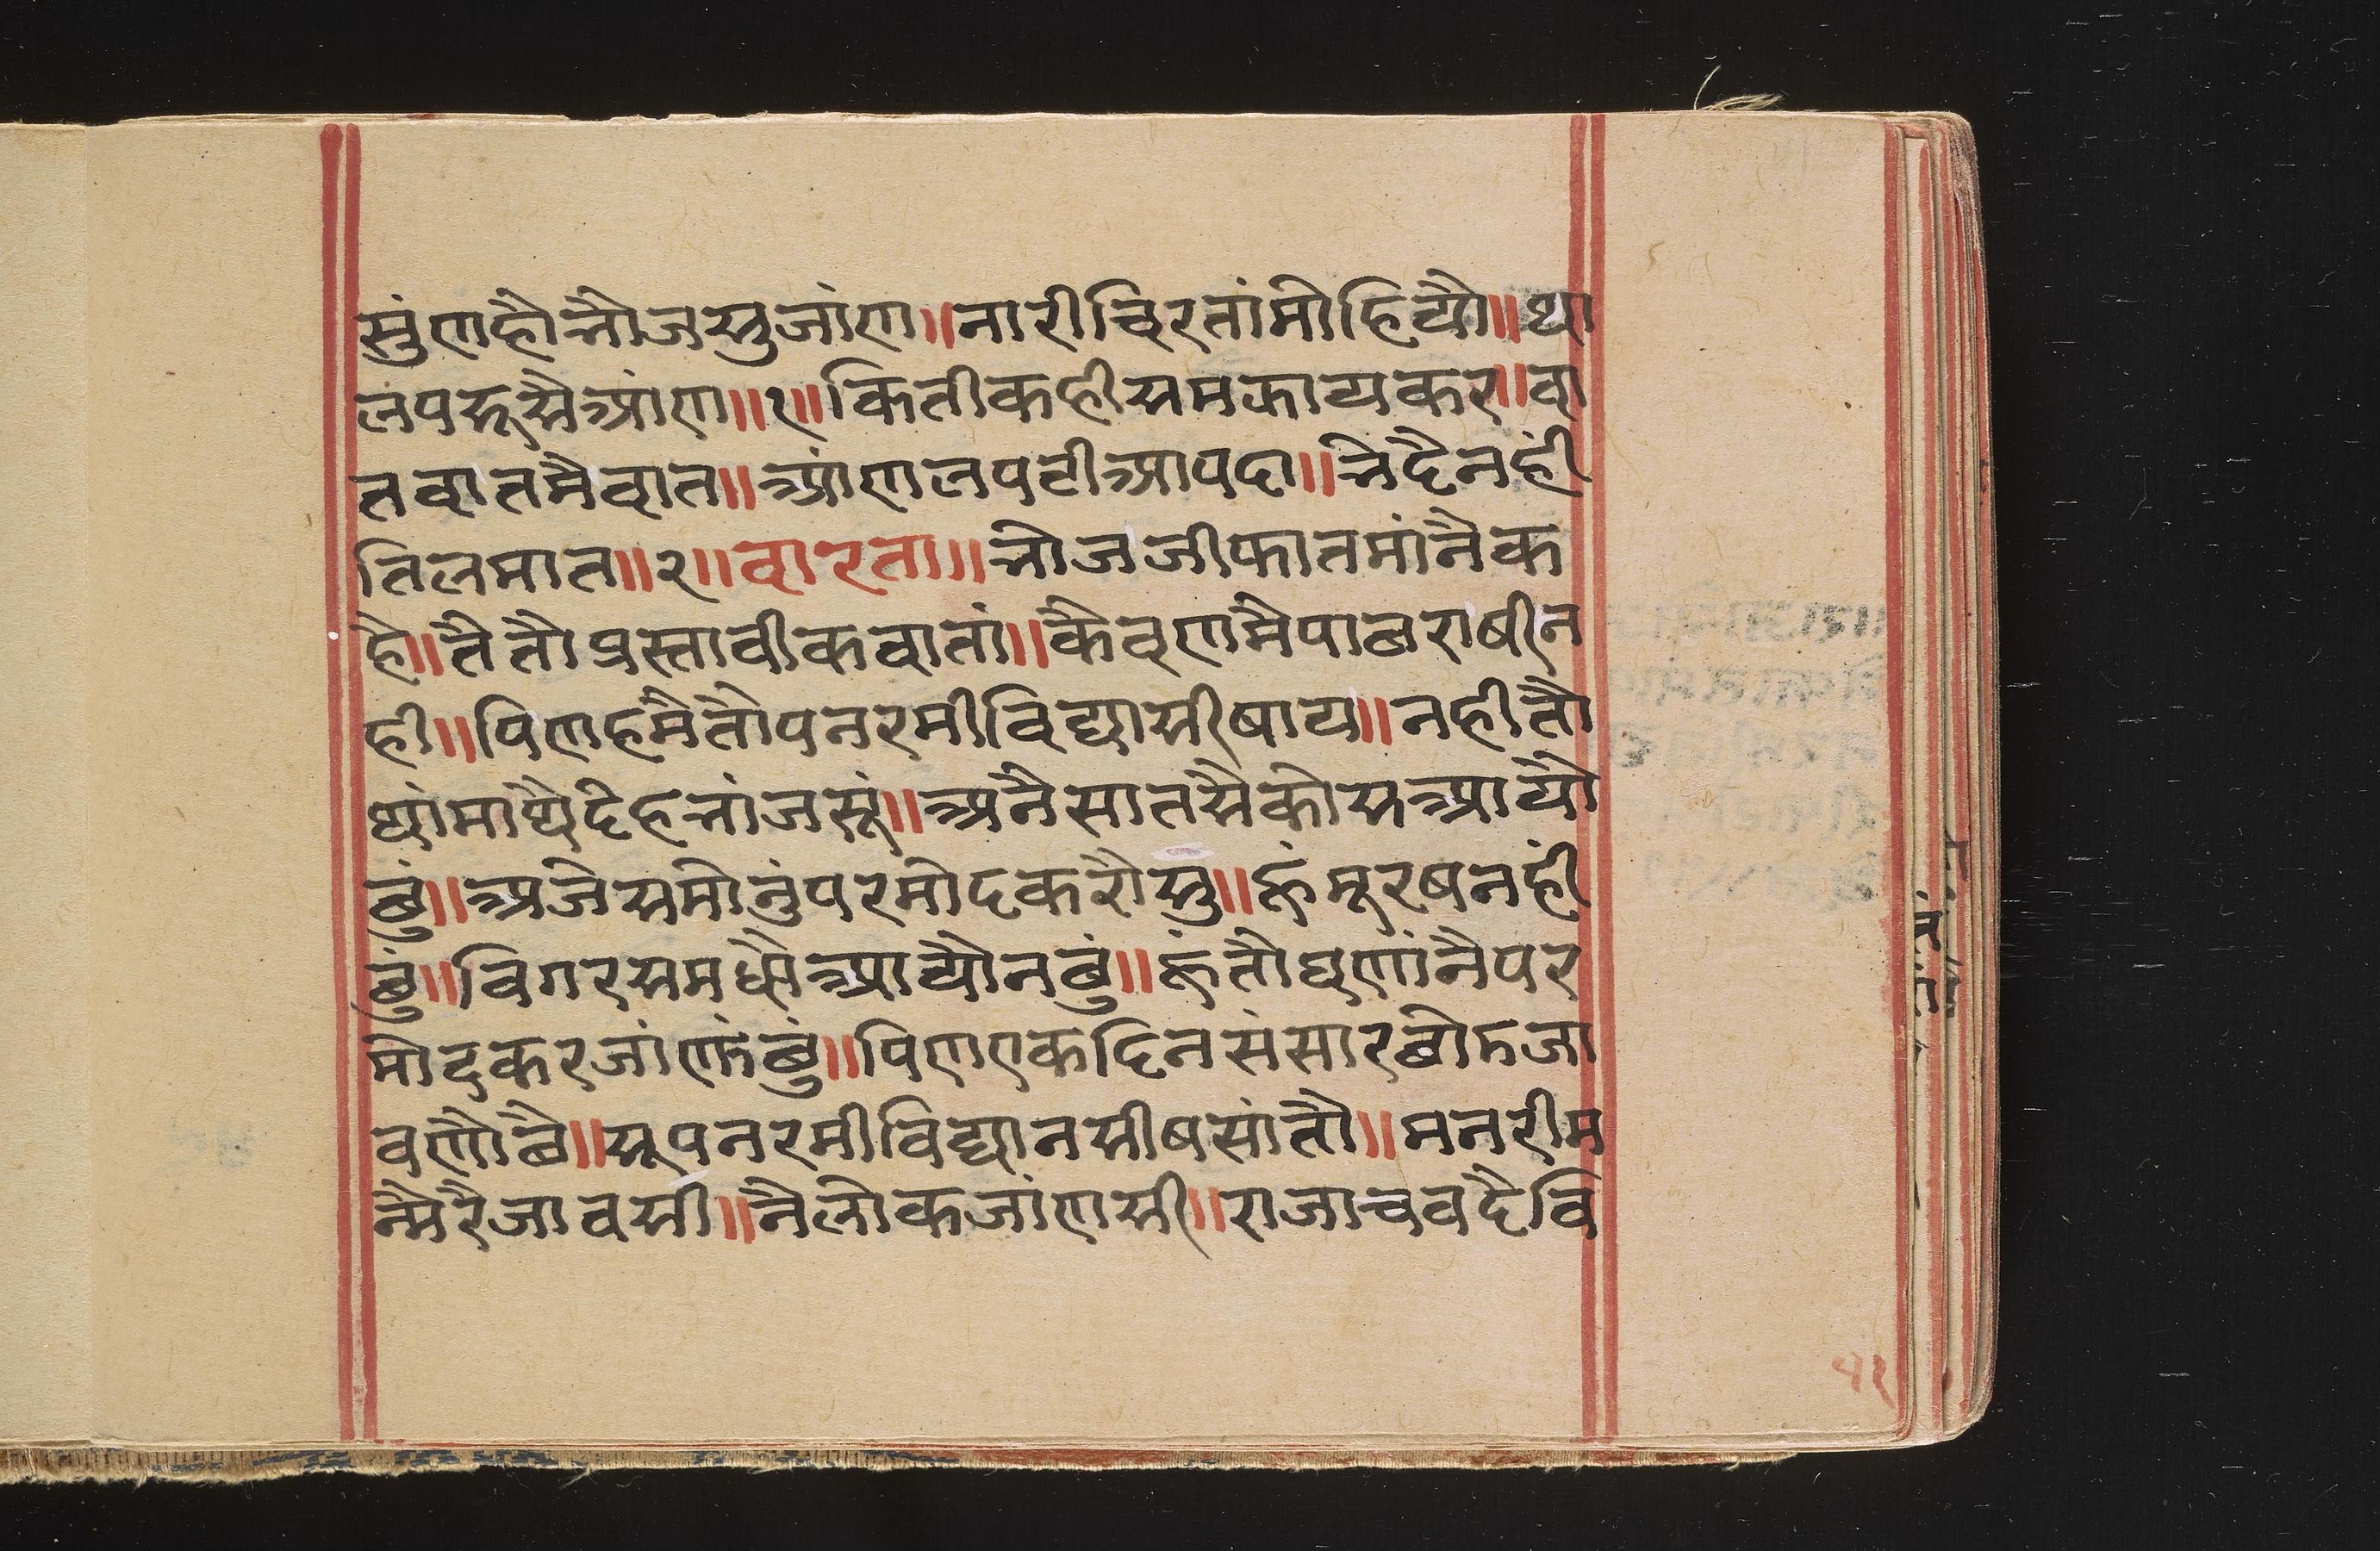 सुंणहौ भोज सुजांण ॥ नारी चिरतां मोहियौ ॥ था
लप हूसै आंण ॥ १ ॥ किती कही समकाय कर ॥ वा
त वात मै वात ॥ आंण लपटी आपदा ॥ भेदै नहीं
तिल मात ॥ २ ॥ वारता ॥ भोजजी फातमां नै क
है ॥ तै तौ प्रस्तावीक वातां ॥ कैवण मै पाछ राषी न
ही ॥ पिण हमै तौ पनरमी विद्या सीषाय ॥ नही तौ
थां माथै देह भांजसूं ॥ अनै सात सै कोस आयौ
छुं ॥ अजेस मोनुं परमोद करौ सु ॥ हुं मूरष नहीं
छुं ॥ विगर समधौ आयौ न छुं ॥ हुं तौ घणां नै पर
मोद कर जांणुं छुं ॥ पिण एक दिन संसार छोड जा
वणौ छै ॥ सू पनरमी विद्या न सीषसां तौ ॥ मनरी म
न्मै रै जावसी ॥ नै लोक जांणसी ॥ राजा चवदै वि
५१